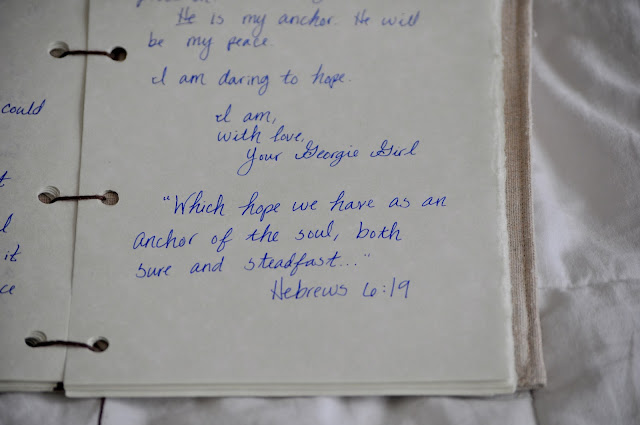 could
He is my anchor. He will
be my peace.
I am daring to hope.
I am,
with love,
Your Georgie Girl
"Which hope we have as an
anchor of the soul, both
sure and steadfast..."
it
Hebrews 6:19